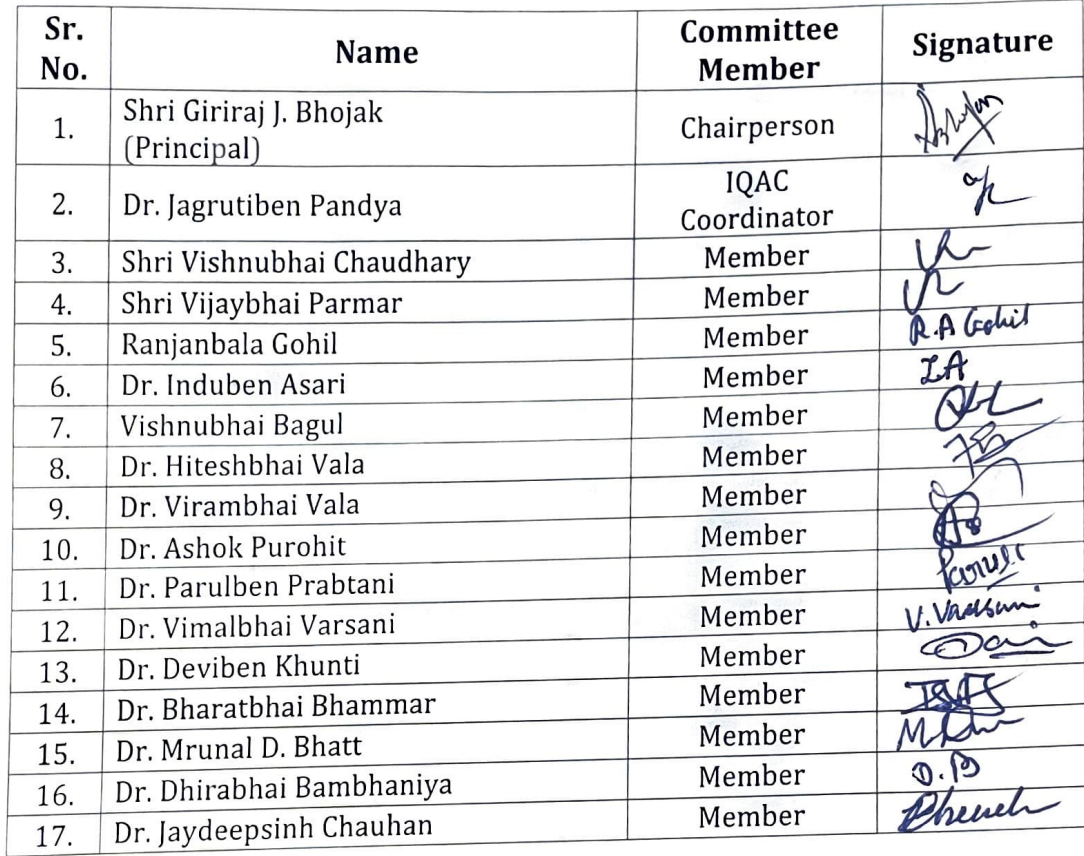 Sr. No. Name Committee Member Signature
1. Shri Giriraj J. Bhojak (Principal) Chairperson
2. Dr. Jagrutiben Pandya IQAC Coordinator
3. Shri Vishnubhai Chaudhary Member
4. Shri Vijaybhai Parmar Member
5. Ranjanbala Gohil Member R.A Gohil
6. Dr. Induben Asari Member IA
7. Vishnubhai Bagul Member
8. Dr. Hiteshbhai Vala Member
9. Dr. Virambhai Vala Member
10. Dr. Ashok Purohit Member
11. Dr. Parulben Prabtani Member
12. Dr. Vimalbhai Varsani Member V. Varsani
13. Dr. Deviben Khunti Member
14. Dr. Bharatbhai Bhammar Member
15. Dr. Mrunal D. Bhatt Member
16. Dr. Dhirabhai Bambhaniya Member D.B
17. Dr. Jaydeepsinh Chauhan Member